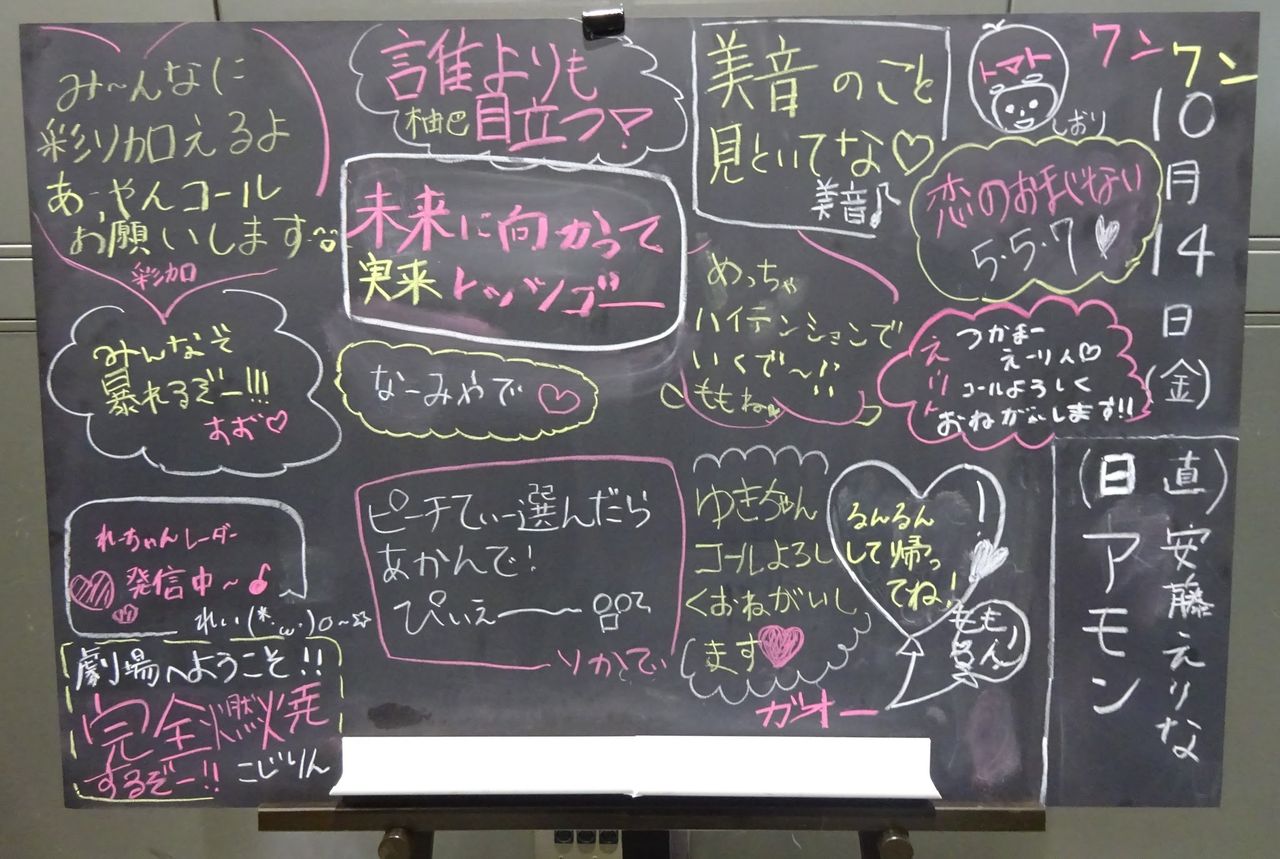 み〜んなに
彩り加えるよ
あーやんコール
お願いします
彩加
誰よりも
柚巴 目立つ!
美音のこと
見といてな♡
美音♪
トマト
しおり
ワンワン
10月14日(金)
未来に向かって
実来トッツゴー
恋のおまじない
5・5・7
めっちゃ
ハイテンションで
いくで〜!!
ももね
つかまー
えーりん♡
コールよろしく
おねがいします!!
えりい
みんなぞ
暴れるぞー!!!
すず♡
なーみやで♡
(直)安藤えりな
(日)アモン
れーちゃんレーダー
発信中〜♪
れい(*・ω・)o〜☆
ピーチてぃー選んだら
あかんで!
ぴぃえー
りかてぃ
ゆきちゃん
コールよろし
くおねがいし
ます
るんるん
して帰っ
てね!
ガオー
劇場へようこそ!!
完全燃焼
するぞー!! こじりん